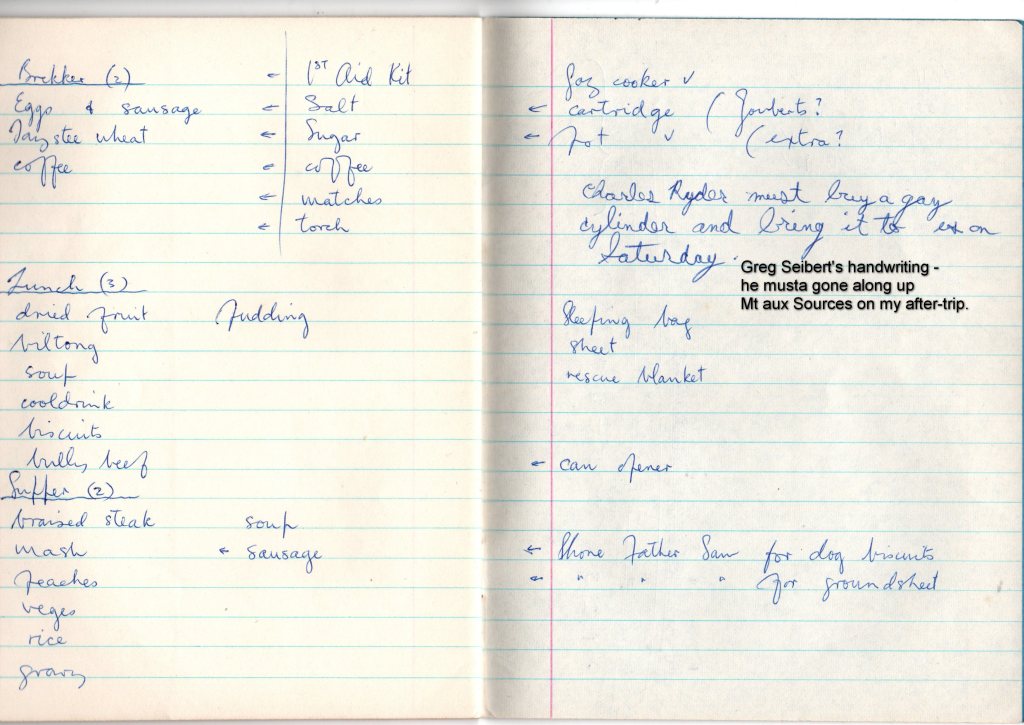 Brekker (2)
Eggs & sausage
Jaystee wheat
coffee
← 1ST Aid Kit
← Salt
← Sugar
← coffee
← matches
← torch
Lunch (3)
dried fruit pudding
biltong
soup
cooldrink
biscuits
bully beef
Supper (2)
braised steak soup
mash ← sausage
peaches
veges
rice
gravy
Gaz cooker ✓
← cartridge ( Jouberts?
← pot ✓ ( extra?
Charles Ryder must buy a gay
cylinder and bring it to ex on
Saturday.
Greg Seibert's handwriting -
he musta gone along up
Mt aux Sources on my after-trip.
Sleeping bag
sheet
rescue blanket
← can opener
← Phone Father Sam for dog biscuits
← " " " for groundsheet